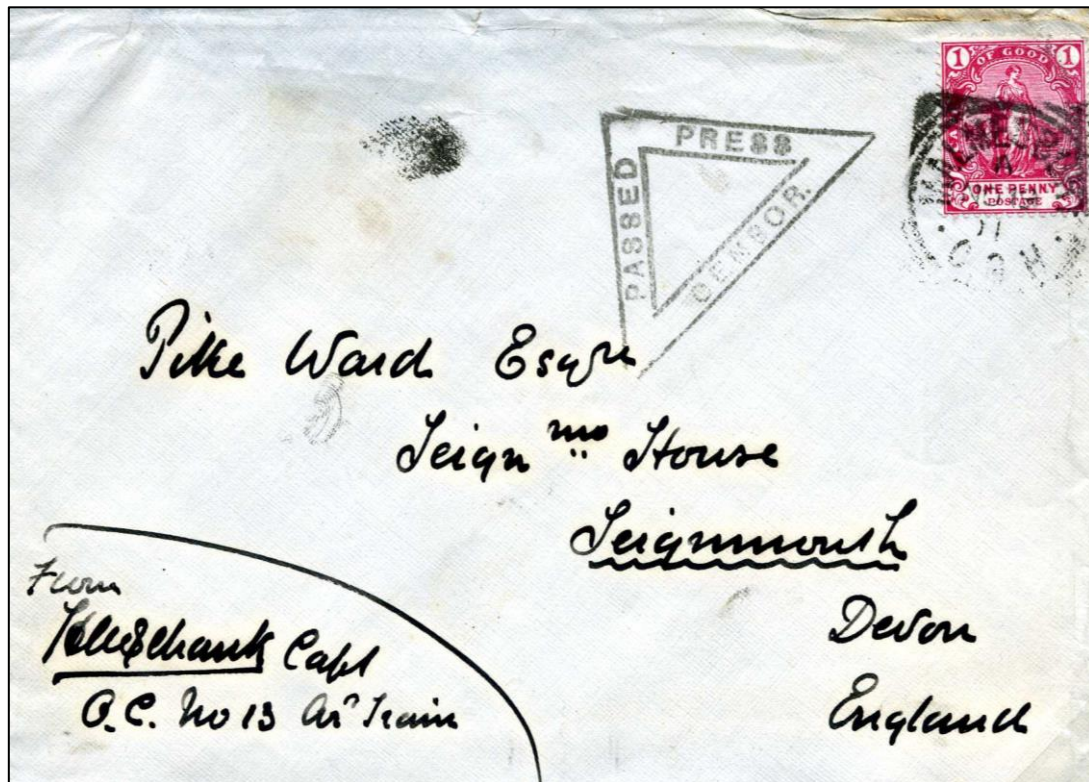 1 OF GOOD 1
ONE PENNY
POSTAGE
PASSED PRESS CENSOR.
Pike Ward Esqre
Teignmo House
Teignmouth
Devon
England
From
Capt
O.C. No 13 Ar Train